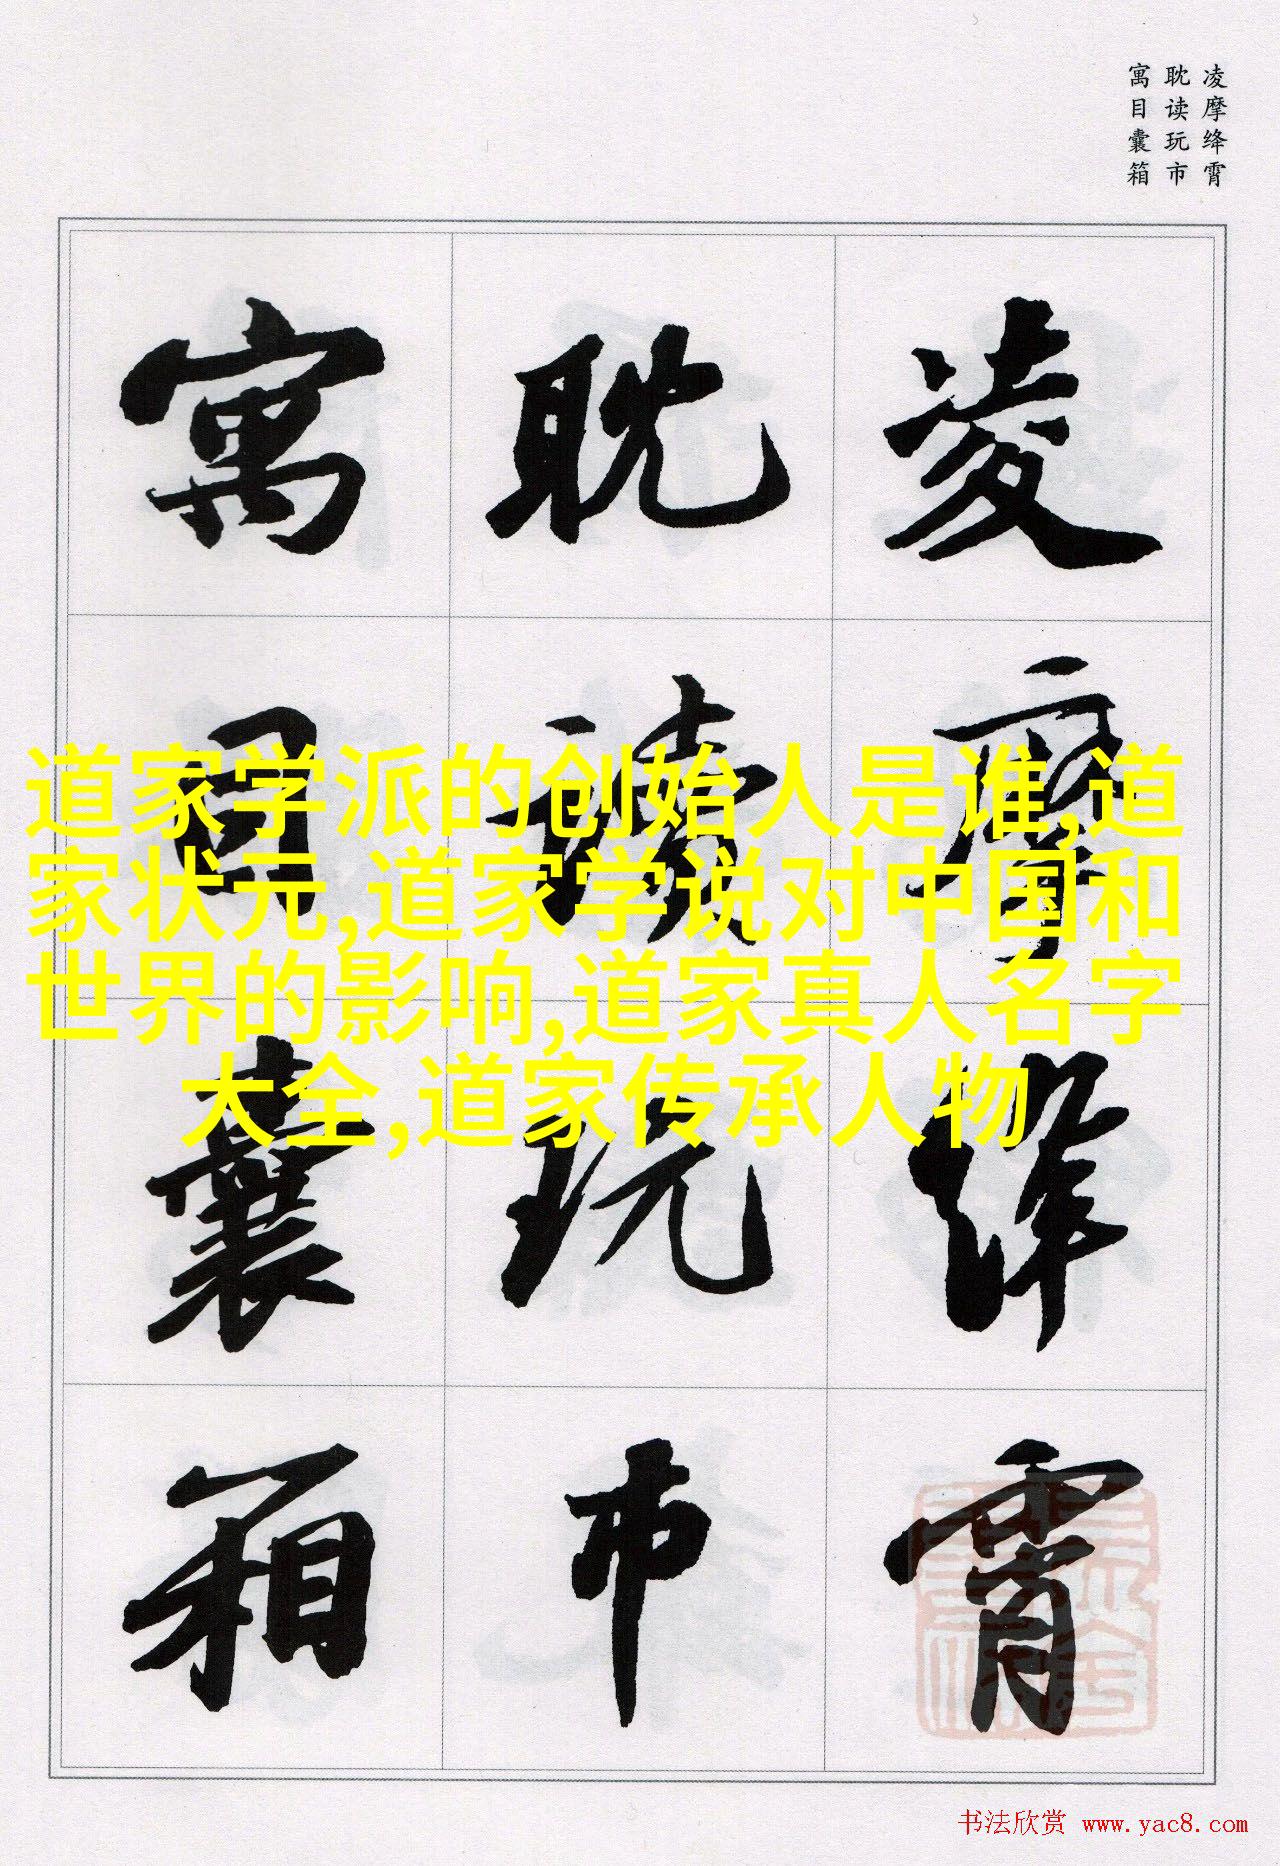 凌摩绛霄
耽读玩市
寓目囊箱
凌摩绛霄
耽读玩市
寓目囊箱
道家学派的创始人是谁,道
家状元,道家学说对中国和
世界的影响,道家真人名字
大全,道家传承人物
书法欣赏 www.yac8.com